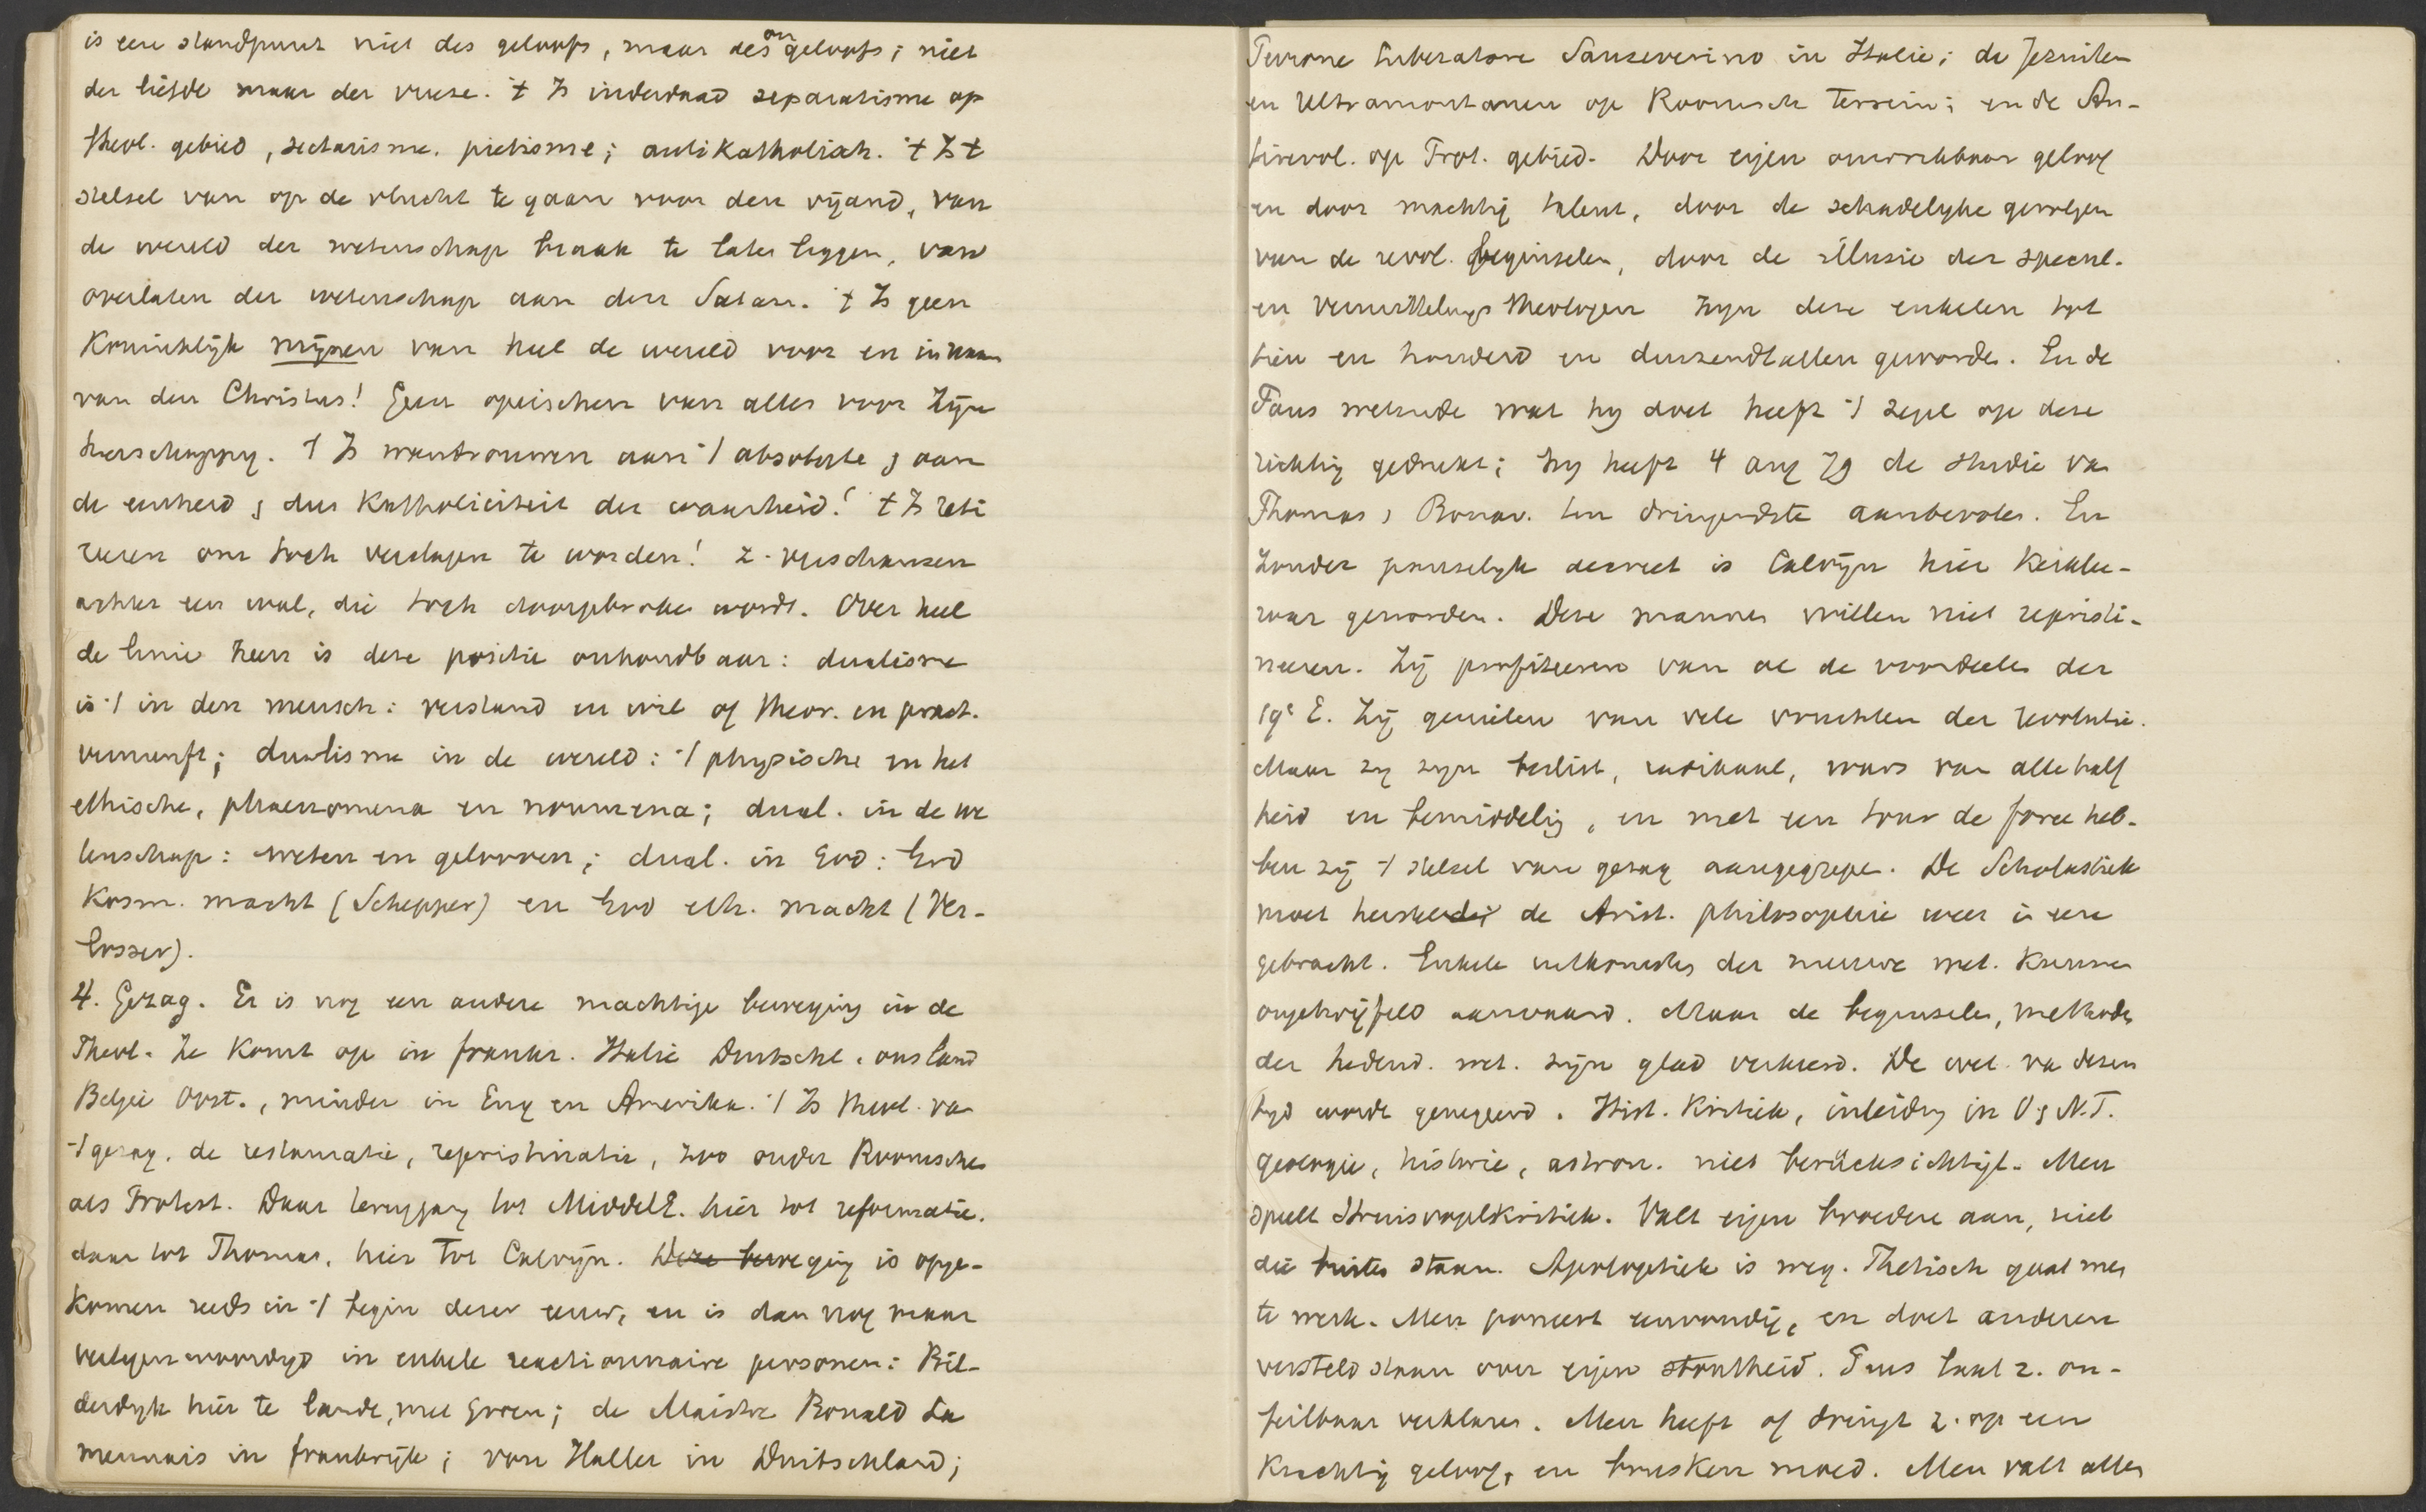 is een standpunt niet des geloofs, maar des ongeloofs; niet
der liefde maar der vreze. 't Is inderdaad separatisme op
theol. gebied, sectarisme. pietisme; antikatholiek. 't Is 't
stelsel van op de vlucht te gaan voor den vijand, van
de wereld der wetenschap braak te laten liggen, van
overlaten der wetenschap aan den Satan. 't Is geen
Koninklijk mijnen van heel de wereld voor en in naam
van den Christus! Geen opeischen van alles voor zijn
heerschappy. 't Is wantrouwen aan 't absolute, aan
de eenheid, dus Katholiciteit der waarheid! 't Is reti
reeren om toch verslagen te worden! z. verschansen
achter een wal, die toch doorgebroken wordt. Over heel
de linie heen is deze positie onhoudbaar: dualisme
is 't in den mensch: verstand en wil of theor. en pract.
vernunft; dualisme in de wereld: 't physische en het
ethische, phaenomena en noumena; dual. in de we
tenschap: weten en gelooven; dual. in God: God
Kosm. macht (Schepper) en God eth. macht (Ver-
losser).
4. Gezag. Er is nog een andere machtige beweging in de
Theol. Ze Komt op in frankr. Italie Duitschl. ons land
Belgie Oost., minder in Eng en Amerika. 't Is theol. van
't gezag. de restauratie, repristinatie, zoo onder Roomschen
als Protest. Daar teruggang tot MiddelE. hier tot reformatie.
daar tot Thomas, hier tot Calvijn. Deze beweging is opge-
Komen reeds in 't begin dezer eeuw, en is dan nog maar
vertegenwoordigd in enkele reactionnaire personen: Bil-
derdyk hier te lande, met Groen; de Maistre Bonald La
mennais in frankrijk; von Haller in Duitschland;
Perrone Liberatore Sanseverino in Italie; de Jezuiten
en Ultramontanen op Roomsch Terrein; en de An-
tirevol. op Prot. gebied. Door eigen onwrikbaar geloof
en door machtig talent, door de schadelyke gevolgen
van de revol. beginselen, door de illusie der specul.
en Vermittelungs theologen zyn deze enkelen tot
tien en honderd en duizendtallen geworden. En de
Paus wetende wat hy doet heeft 't zegel op deze
richting gedrukt; hy heeft 4 aug 79 de studie van
Thomas, Bonav. ten dringendste aanbevolen. En
zonder pauselyk decreet is Calvijn hier Kerklee-
raar geworden. Deze mannen willen niet repristi-
neeren. Zij profiteeren van al de voordeelen der
19e E. Zij genieten van vele vruchten der revolutie.
Maar zy zyn beslist, radikaal, wars van alle half
heid en bemiddeling, en met een tour de force heb-
ben zij 't stelsel van gezag aangegrepen. De Scholastiek
moet hersteld, de Arist. philosophie weer in eere
gebracht. Enkele uitkomsten der nieuwe wet. Kunnen
ongetwijfeld aanvaard. Maar de beginselen, methoden
der hedend. wet. zijn glad verkeerd. De wet. van dezen
tyd wordt genegeerd. Hist. Kritiek, inleiding in O, N.T.
geologie, historie, astron. niet berücksichtigt. Men
speelt Struisvogelkritiek. Valt eigen broeders aan, niet
die buiten staan. Apologetiek is weg. Thetisch gaat men
te werk. Men poneert eenvoudig, en doet anderen
versteld staan over eigen stoutheid. Paus laat z. on-
feilbaar verklaren. Men heeft of dringt z. op een
Krachtig geloof, en brusken moed. Men valt alles